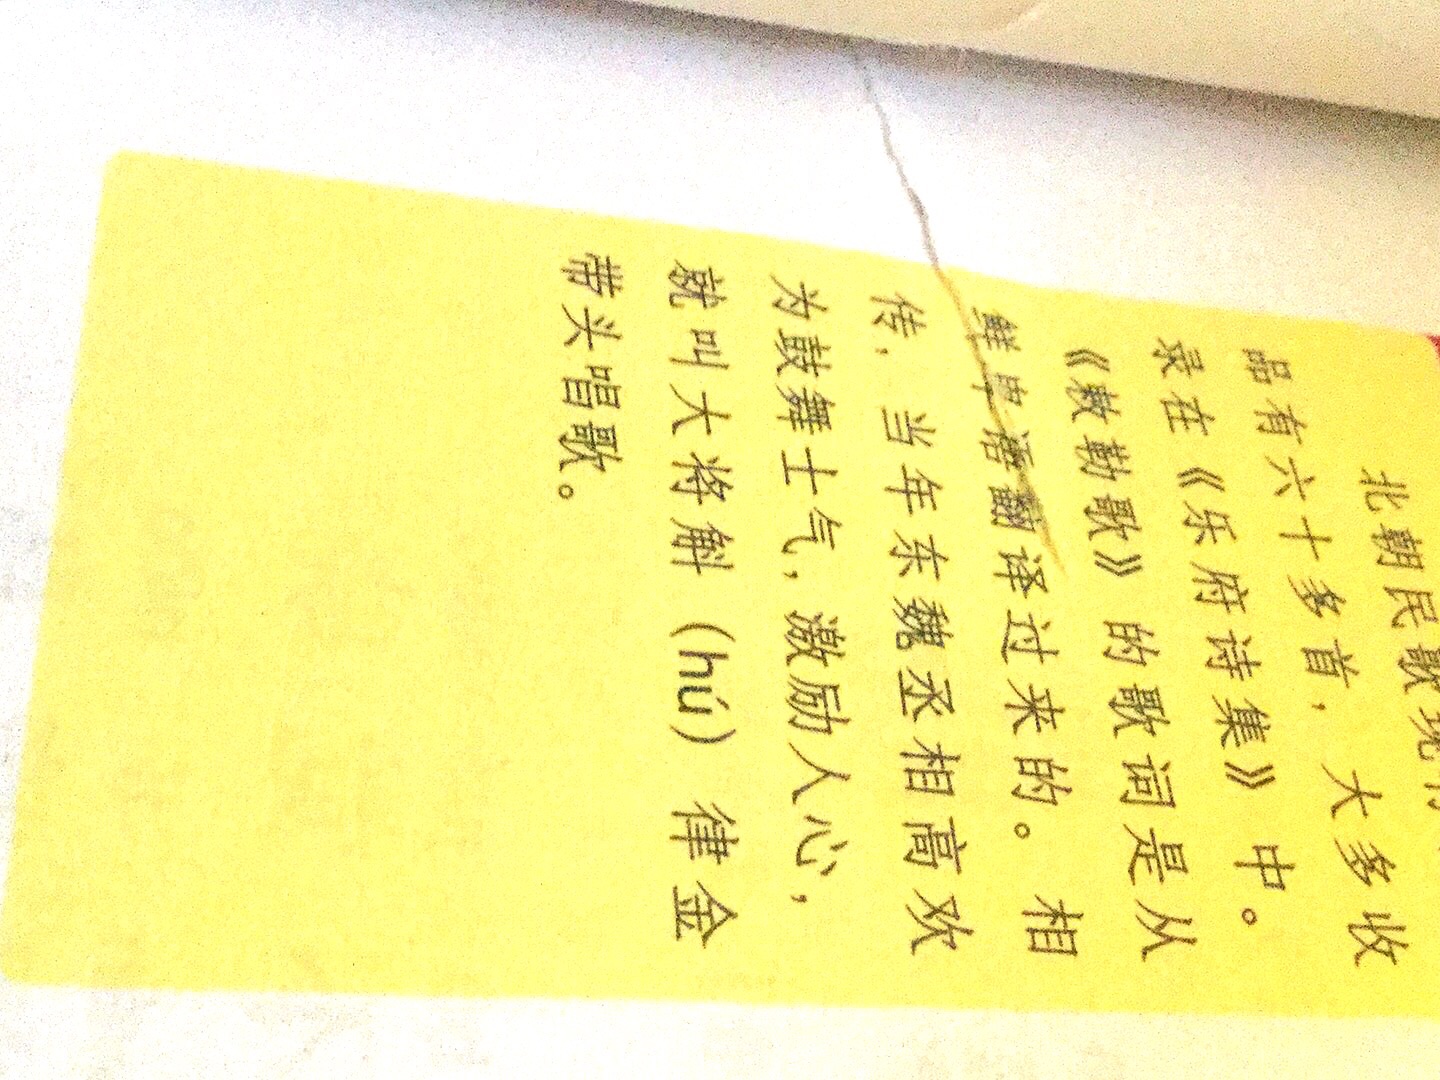 北朝民歌现
品有六十多首，大多收
录在《乐府诗集》中。
《敕勒歌》的歌词是从
鲜卑语翻译过来的。相
传，当年东魏丞相高欢
为鼓舞士气，激励人心，
就叫大将斛（hú）律金
带头唱歌。